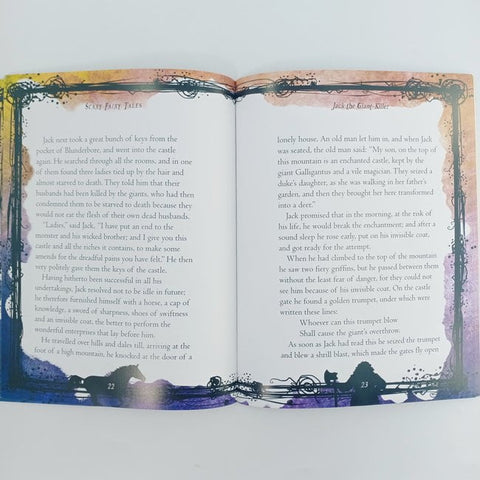 Scary Fairy Tales
Jack next took a great bunch of keys from the
pocket of Blunderbore, and went into the castle
again. He searched through all the rooms, and in one
of them found three ladies tied up by the hair and
almost starved to death. They told him that their
husbands had been killed by the giants, who had then
condemned them to be starved to death because they
would not eat the flesh of their own dead husbands.
"Ladies," said Jack, "I have put an end to the
monster and his wicked brother; and I give you this
castle and all the riches it contains, to make some
amends for the dreadful pains you have felt." He then
very politely gave them the keys of the castle.
Having hitherto been successful in all his
undertakings, Jack resolved not to be idle in future;
he therefore furnished himself with a horse, a cap of
knowledge, a sword of sharpness, shoes of swiftness
and an invisible coat, the better to perform the
wonderful enterprises that lay before him.
He travelled over hills and dales till, arriving at the
foot of a high mountain, he knocked at the door of a
22
Jack the Giant-Killer
lonely house. An old man let him in, and when Jack
was seated, the old man said: "My son, on the top of
this mountain is an enchanted castle, kept by the
giant Galligantus and a vile magician. They seized a
duke's daughter, as she was walking in her father's
garden, and then they brought her here transformed
into a deer."
Jack promised that in the morning, at the risk of
his life, he would break the enchantment; and after a
sound sleep he rose early, put on his invisible coat,
and got ready for the attempt.
When he had climbed to the top of the mountain
he saw two fiery griffins, but he passed between them
without the least fear of danger, for they could not
see him because of his invisible coat. On the castle
gate he found a golden trumpet, under which were
written these lines:
Whoever can this trumpet blow
Shall cause the giant's overthrow.
As soon as Jack had read this he seized the trumpet
and blew a shrill blast, which made the gates fly open
23